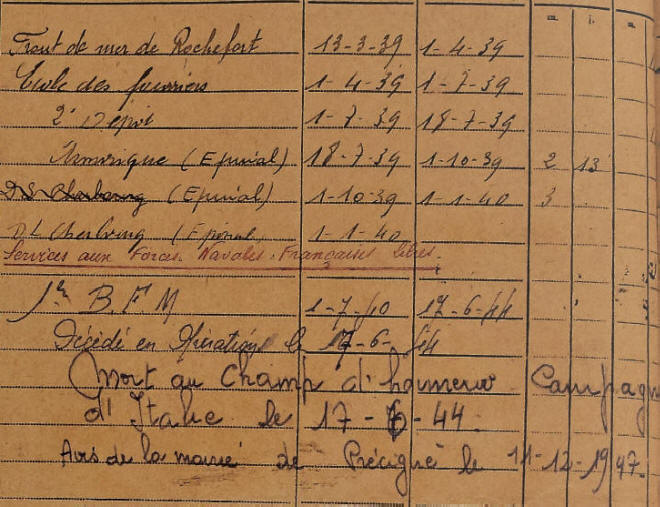 m. j.
Front de mer de Rochefort 13-3-39 1-4-39
Ecole des fourriers 1-4-39 1-7-39
2e Dépôt 1-7-39 18-7-39
Armorique (Epinal) 18-7-39 1-10-39 2 13
D.S. Cherbourg (Epinal) 1-10-39 1-1-40 3
D.L. Cherbourg (Epinal) 1-1-40
Services aux Forces Navales Françaises Libres.
1er B.F.M 1-7-40 17-6-44
Décédé en Opérations le 17-6-44
Mort au Champ d'honneur Campagn
d'Italie le 17-6-44.
Avis de la mairie de Précigné le 11-12-1947.